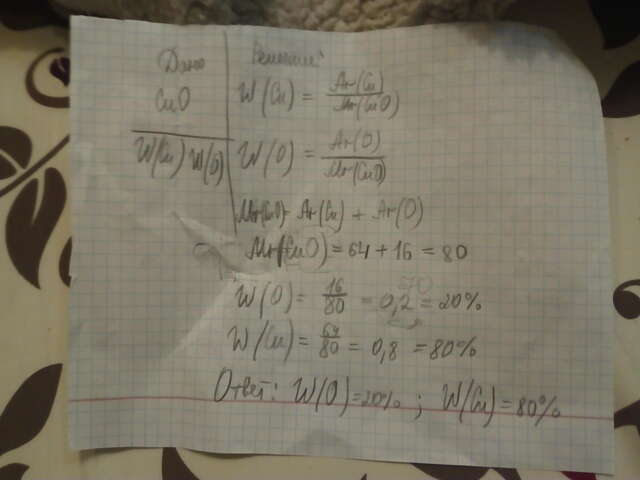 Дано
CuO
W(Cu) W(O)
Решение:
W(Cu) = Ar(Cu)/Mr(CuO)
W(O) = Ar(O)/Mr(CuO)
Mr(CuO) = Ar(Cu) + Ar(O)
Mr(CuO) = 64 + 16 = 80
W(O) = 16/80 = 0,2 = 20%
W(Cu) = 64/80 = 0,8 = 80%
Ответ: W(O) = 20% ; W(Cu) = 80%